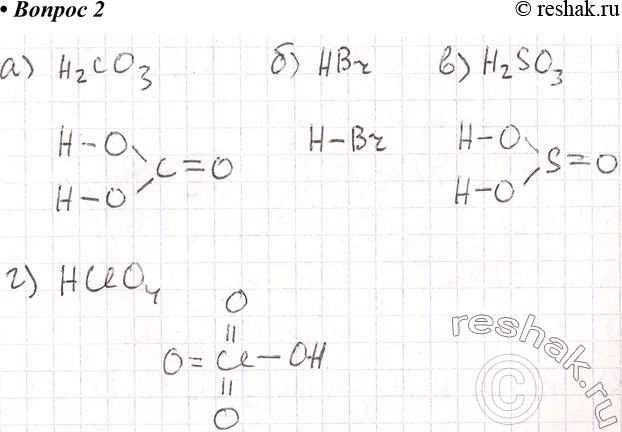 • Вопрос 2
© reshak.ru
а) H₂CO₃ б) HBr в) H₂SO₃
H-O H-Br H-O
C=O S=O
H-O H-O
г) HClO₄
O
||
O=Cl-OH
||
O
reshak.ru
©